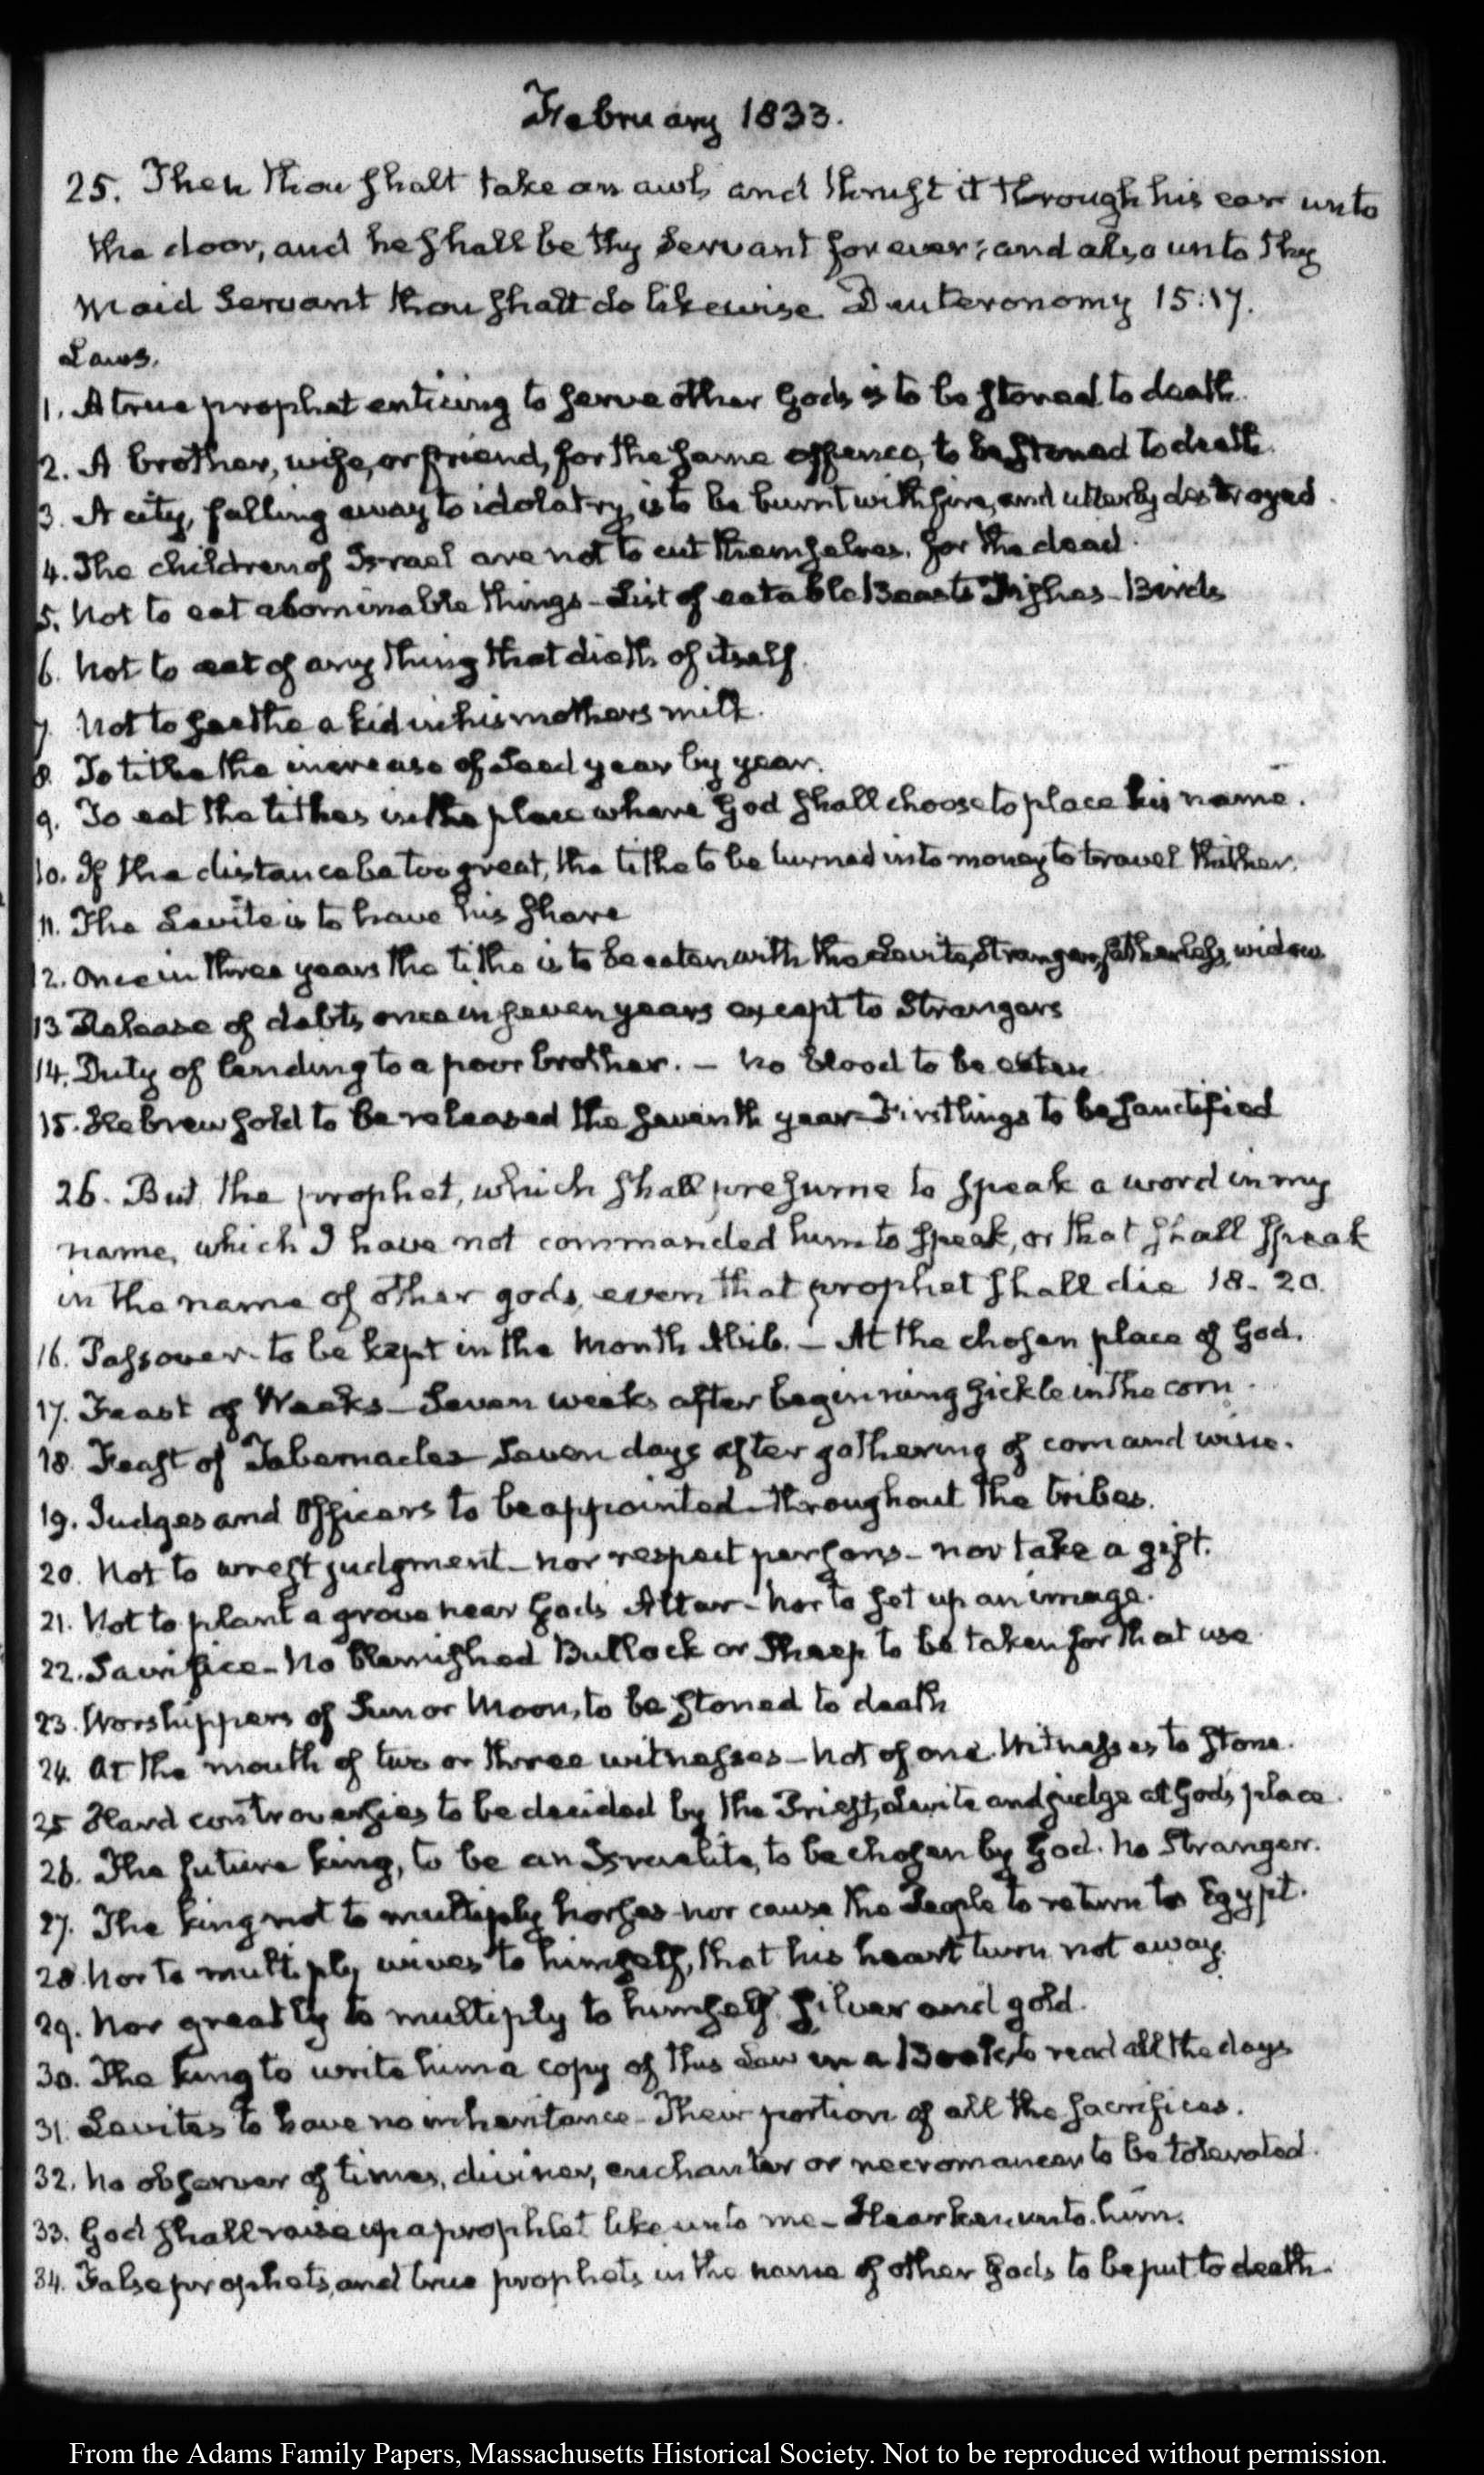 February 1833.
25. Then thou shalt take an awl, and thrust it through his ear unto
the door, and he shall be thy Servant for ever; and also unto thy
Maid Servant thou shalt do likewise Deuteronomy 15:17.
Laws.
1. A true prophet enticing to serve other Gods is to be stoned to death.
2. A brother, wife, or friend, for the same offence, to be stoned to death.
3. A city, falling away to idolatry, is to be burnt with fire, and utterly destroyed.
4. The children of Israel are not to cut themselves, for the dead.
5. Not to eat abominable things - List of eatable Beasts Fishes - Birds
6. Not to eat of any thing that dieth of itself.
7. Not to seethe a kid in his mothers milk.
8. To tithe the increase of Seed year by year.
9. To eat the tithes in the place where God shall choose to place his name.
10. If the distance be too great, the tithe to be turned into money to travel thither.
11. The Levite is to have his share
12. Once in three years the tithe is to be eaten with the Levite, Stranger, fatherless, widow.
13 Release of debts once in seven years except to Strangers
14. Duty of lending to a poor brother. - No blood to be eaten
15. Hebrew sold to be released the seventh year - Firstlings to be sanctified
26. But the prophet, which shall presume to speak a word in my
name, which I have not commanded him to speak, or that shall speak
in the name of other gods, even that prophet shall die 18-20.
16. Passover - to be kept in the Month Abib. - At the chosen place of God.
17. Feast of Weeks - Seven weeks after beginning sickle in the corn.
18. Feast of Tabernacles - Seven days after gathering of corn and wine.
19. Judges and Officers to be appointed throughout the tribes.
20. Not to wrest judgment - nor respect persons - nor take a gift.
21. Not to plant a grove near Gods Altar - nor to set up an image.
22. Sacrifice - No blemished Bullock or Sheep to be taken for that use
23. Worshippers of Sun or Moon, to be stoned to death
24. At the mouth of two or three witnesses - not of one. Witnesses to stone.
25 Hard controversies to be decided by the Priest, Levite and judge at Gods place.
26. The future king, to be an Israelite, to be chosen by God. No Stranger.
27. The king not to multiply horses nor cause the People to return to Egypt.
28. Nor to multiply wives to himself, that his heart turn not away.
29. Nor greatly to multiply to himself silver and gold.
30. The king to write him a copy of this Law in a Book, to read all the days
31. Levites to have no inheritance - Their portion of all the sacrifices.
32. No observer of times, diviner, enchanter or necromancer to be tolerated.
33. God shall raise up a prophet like unto me - Hearken unto him.
34. False prophets, and true prophets in the name of other Gods to be put to death.
From the Adams Family Papers, Massachusetts Historical Society. Not to be reproduced without permission.